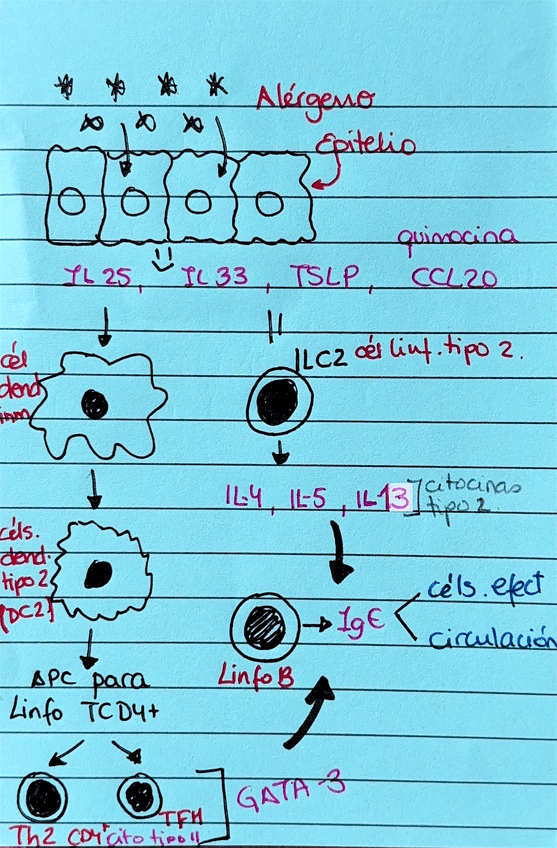 Alérgeno
Epitelio
quimocina
IL 25, IL 33, TSLP, CCL20
ILC2 cél linf. tipo 2.
cél
dend
inm
IL-4, IL-5, IL-13
citocinas
tipo 2.
céls.
dend.
tipo 2
(DC2)
IgE
céls. efect
circulación
Linfo B
APC para
Linfo TCD4+
GATA-3
TFH
Th2 CD4+ cito tipo II